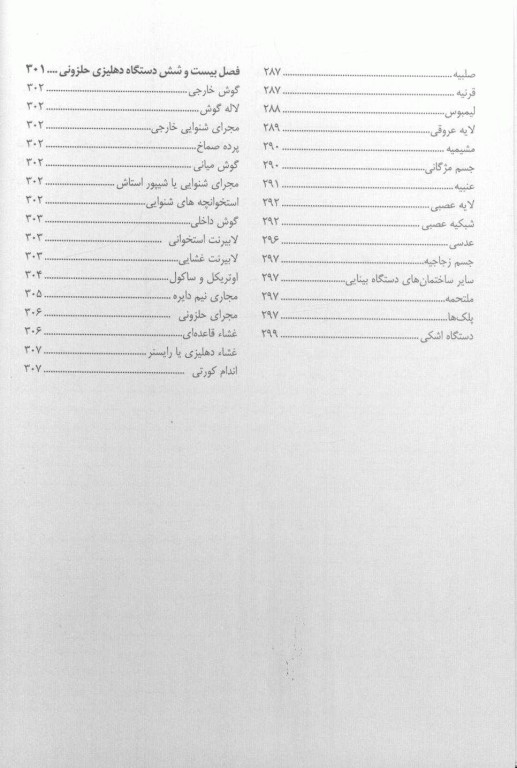 صلبیه ........ ۲۸۷
قرنیه ........ ۲۸۷
لیمبوس ........ ۲۸۸
لایه عروقی ........ ۲۸۹
مشیمیه ........ ۲۹۰
جسم مژگانی ........ ۲۹۰
عنبیه ........ ۲۹۱
لایه عصبی ........ ۲۹۲
شبکیه عصبی ........ ۲۹۲
عدسی ........ ۲۹۶
جسم زجاجیه ........ ۲۹۷
سایر ساختمان‌های دستگاه بینایی ........ ۲۹۷
ملتحمه ........ ۲۹۷
پلک‌ها ........ ۲۹۷
دستگاه اشکی ........ ۲۹۹
فصل بیست و شش دستگاه دهلیزی حلزونی .... ۳۰۱
گوش خارجی ........ ۳۰۲
لاله گوش ........ ۳۰۲
مجرای شنوایی خارجی ........ ۳۰۲
پرده صماخ ........ ۳۰۲
گوش میانی ........ ۳۰۲
مجرای شنوایی یا شیپور استاش ........ ۳۰۲
استخوانچه های شنوایی ........ ۳۰۲
گوش داخلی ........ ۳۰۳
لابیرنت استخوانی ........ ۳۰۳
لابیرنت غشایی ........ ۳۰۳
اوتریکل و ساکول ........ ۳۰۴
مجاری نیم دایره ........ ۳۰۵
مجرای حلزونی ........ ۳۰۶
غشاء قاعده‌ای ........ ۳۰۶
غشاء دهلیزی یا رایسنر ........ ۳۰۷
اندام کورتی ........ ۳۰۷